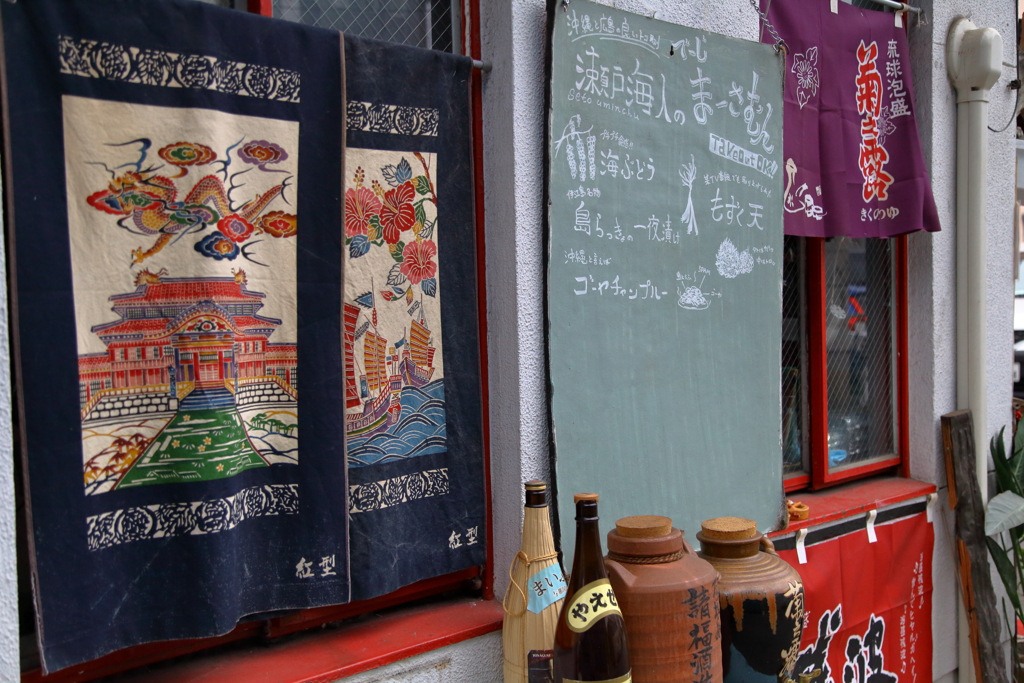 紅型
紅型
沖縄と広島の良いとこ取り
でーじ
瀬戸海人の
まーさむん
Take out OK!
海ぶどう
伊江島名物
島らっきょの一夜漬け
もずく天
沖縄と言えば
ゴーヤチャンプルー
琉球泡盛
菊之露
きくのつゆ
まいふ
やえせ
請福酒